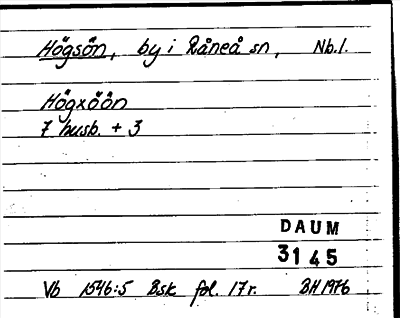 Högsön, by i Råneå sn, Nb.l.
Högxöön
7 husb. + 3
DAUM
3145
Vb 1546:5 Bsk fol. 17r. BH 1976